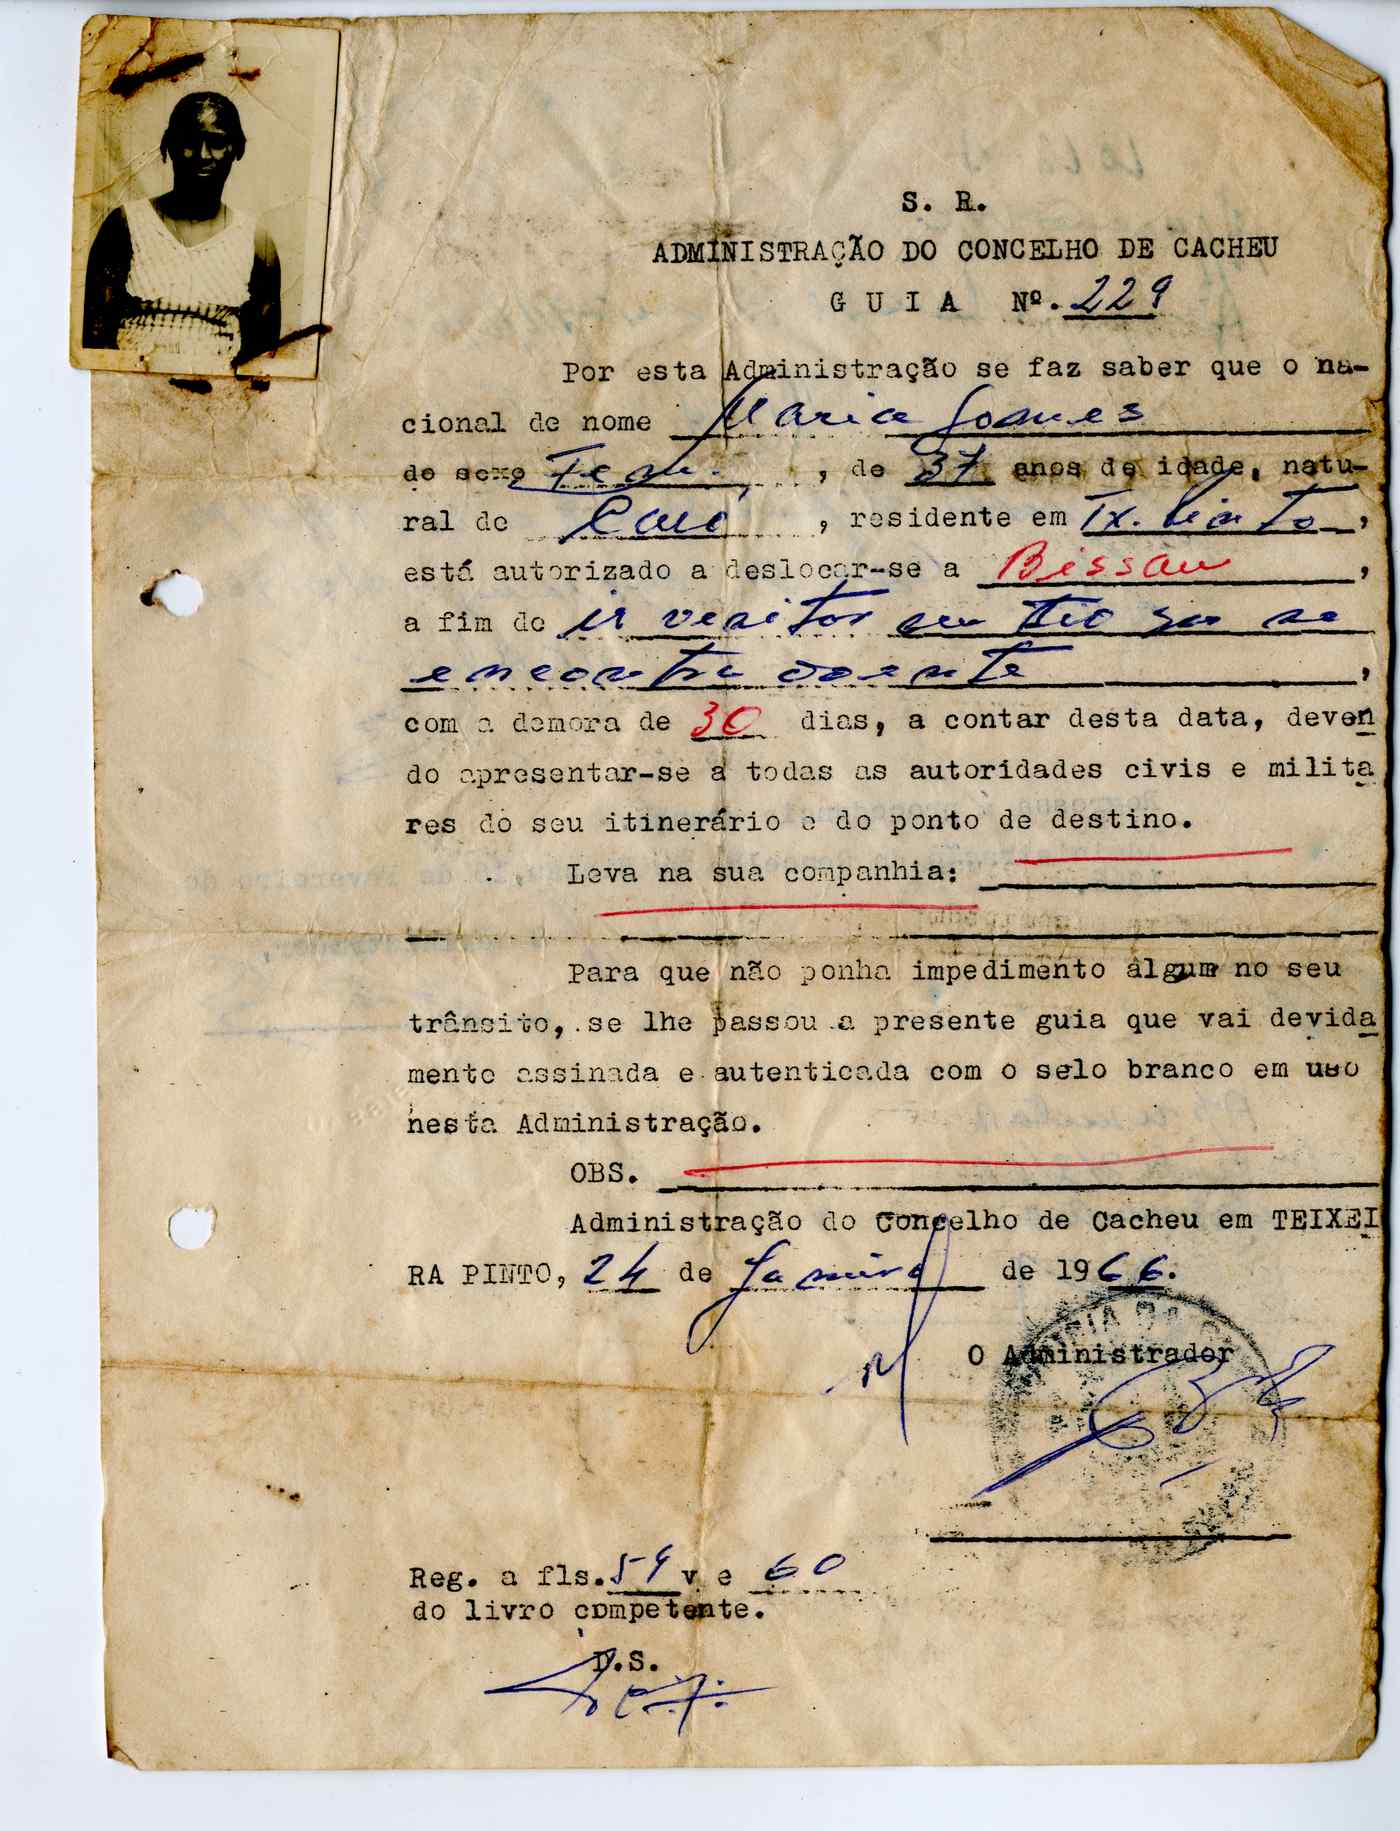 S. R.
ADMINISTRAÇÃO DO CONCELHO DE CACHEU
G U I A Nº. 229
Por esta Administração se faz saber que o na-
cional de nome Maria Gomes
do sexo Fem. , de 37 anos de idade, natu-
ral de Caió , residente em Tx. Pinto,
está autorizado a deslocar-se a Bissau ,
a fim de ir visitar seu tio que se
encontra doente ,
com a demora de 30 dias, a contar desta data, deven
do apresentar-se a todas as autoridades civis e milita
res do seu itinerário e do ponto de destino.
Leva na sua companhia:
Para que não ponha impedimento algum no seu
trânsito, se lhe passou a presente guia que vai devida
mente assinada e autenticada com o selo branco em uso
nesta Administração.
OBS.
Administração do Concelho de Cacheu em TEIXEI
RA PINTO, 24 de Janeiro de 1966.
O Administrador
Reg. a fls. 59 v e 60
do livro competente.
D.S.